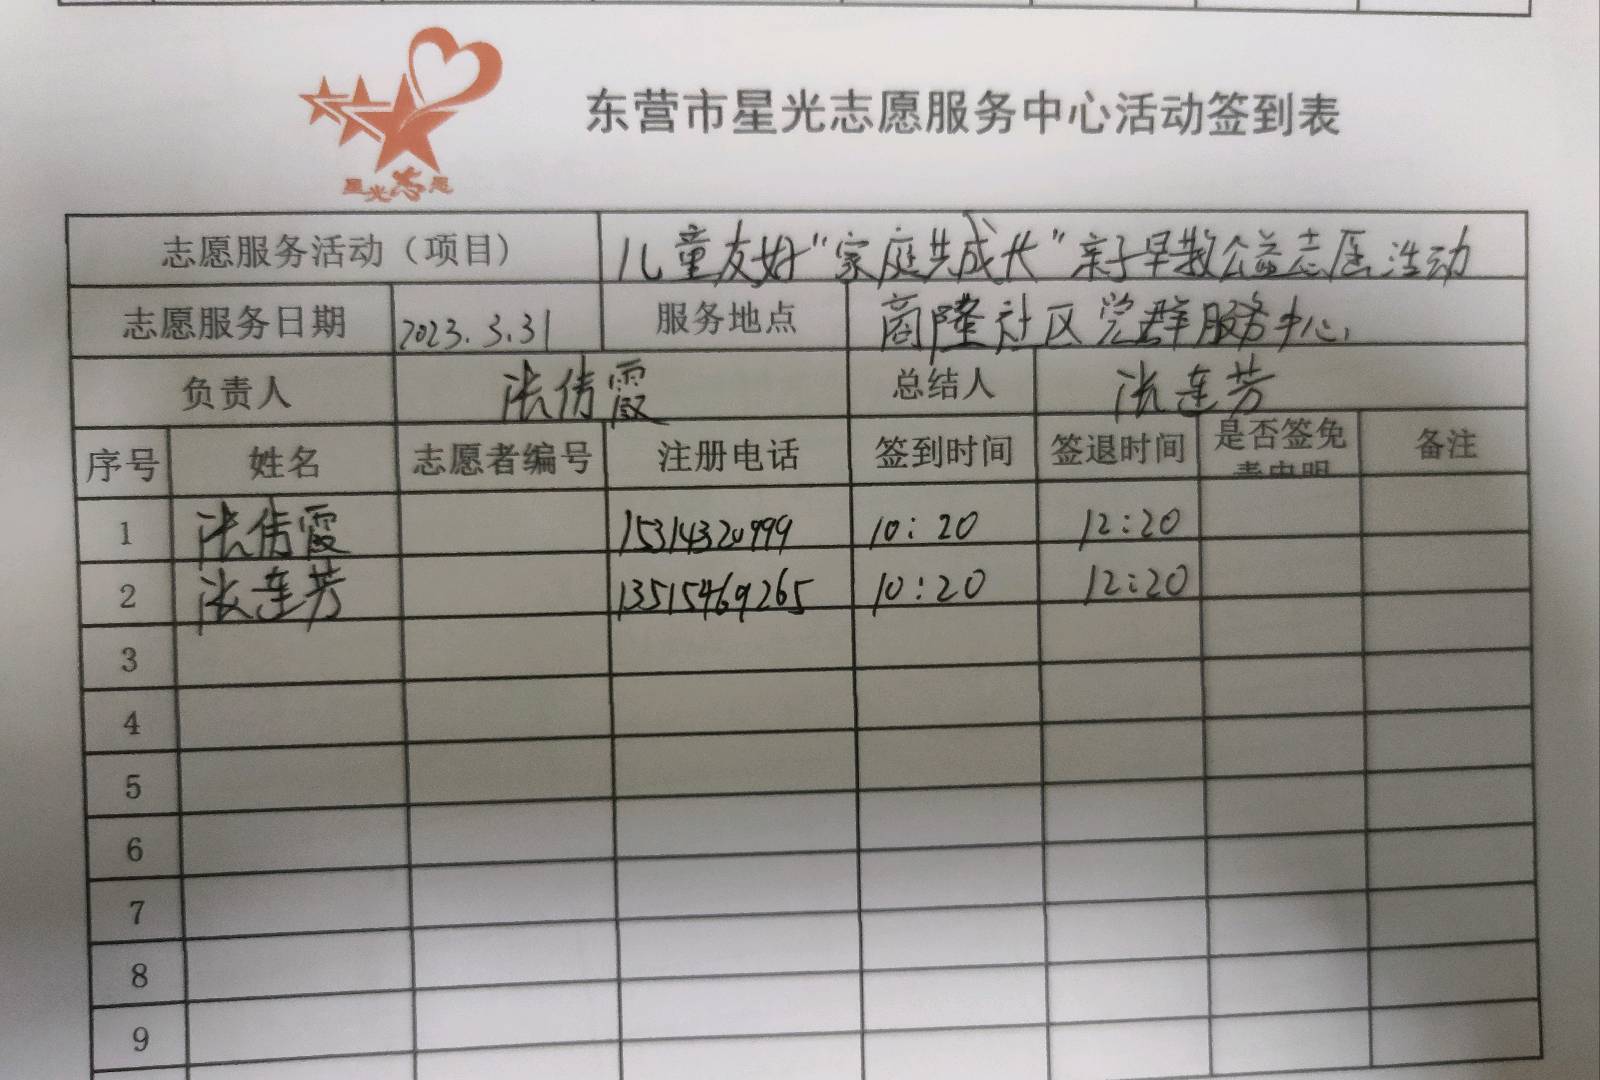 星光志愿
东营市星光志愿服务中心活动签到表
志愿服务活动（项目） 儿童友好“家庭共成长”亲子早教公益志愿活动
志愿服务日期 2023.3.31 服务地点 商隆社区党群服务中心
负责人 张倩霞 总结人 张莲芳
序号 姓名 志愿者编号 注册电话 签到时间 签退时间 是否签免责申明 备注
1 张倩霞 15314320999 10:20 12:20
2 张莲芳 13515469265 10:20 12:20
3
4
5
6
7
8
9